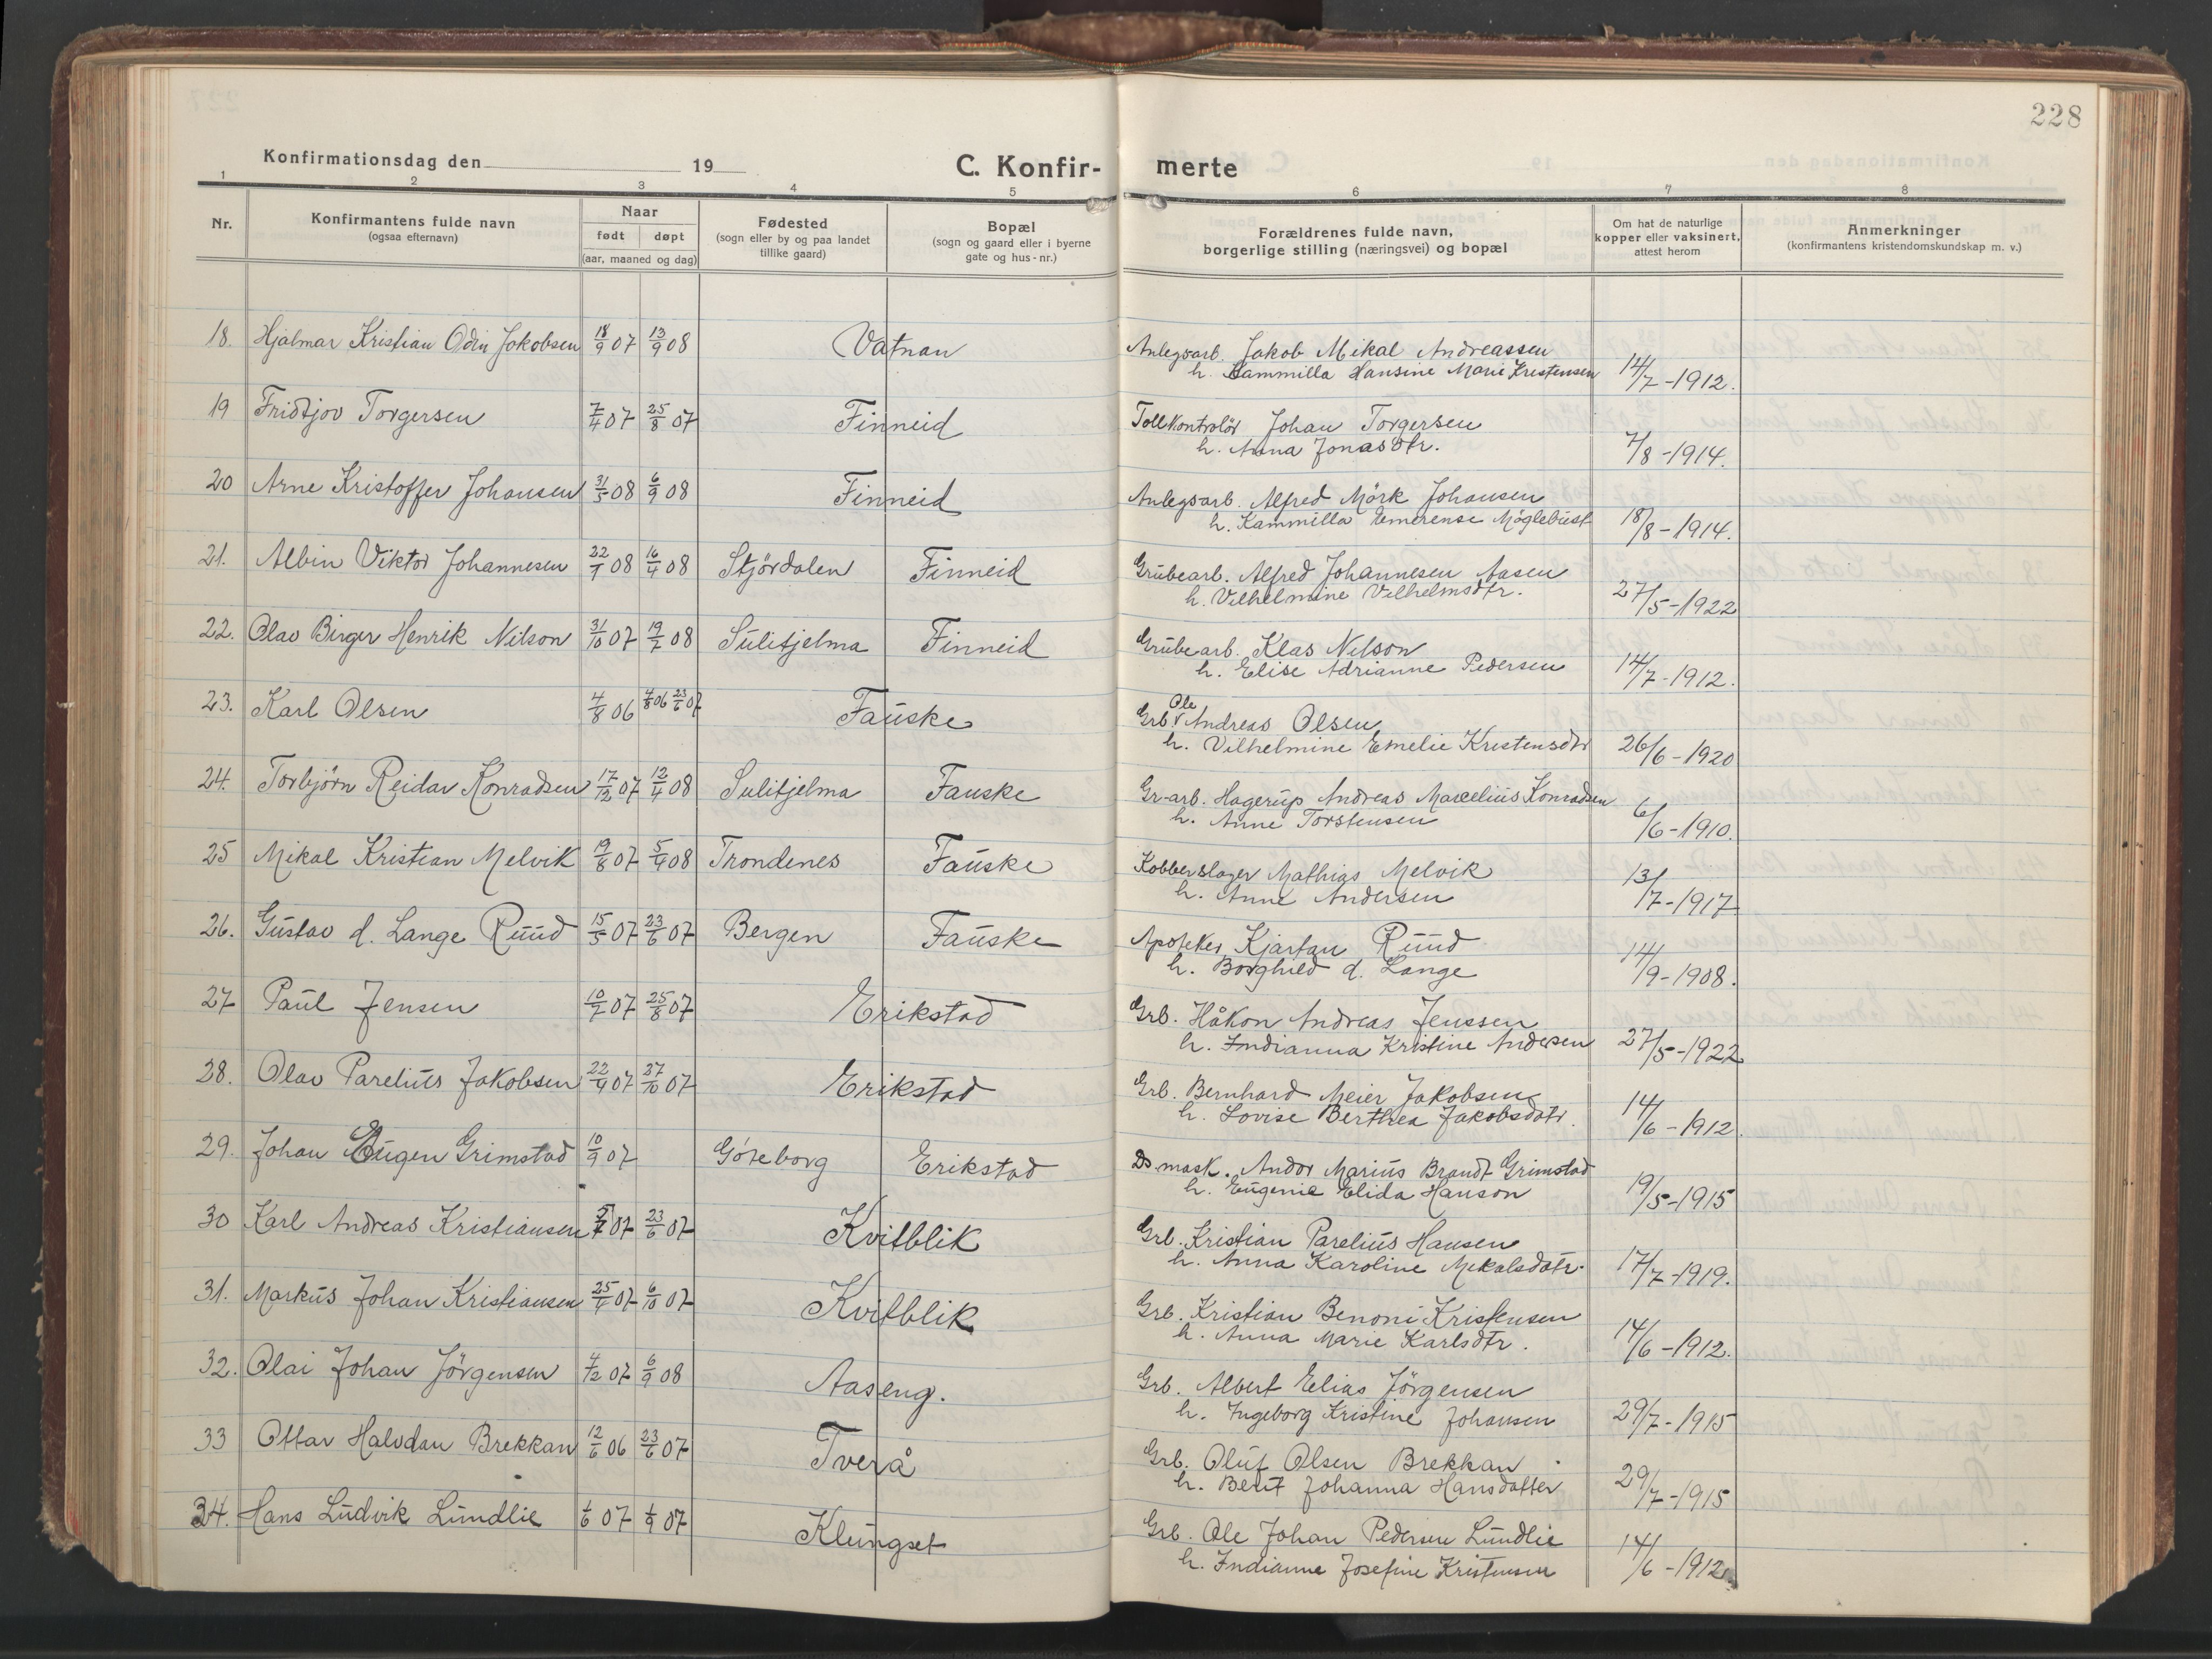 228
Konfirmationsdag den 19
C. Konfir- merte
1 2 3 4 5 6 7 8
Nr.
Konfirmantens fulde navn
(ogsaa efternavn)
Naar
født døpt
(aar, maaned og dag)
Fødested
(sogn eller by og paa landet
tillike gaard)
Bopæl
(sogn og gaard eller i byerne
gate og hus-nr.)
Forældrenes fulde navn,
borgerlige stilling (næringsvei) og bopæl
Om hat de naturlige
kopper eller vaksinert,
attest herom
Anmerkninger
(konfirmantens kristendomskundskap m. v.)
18. Hjalmar Kristian Odin Jakobsen 18/9 07 13/9 08 Vatnan Anlegsarb. Jakob Mikal Andreassen
h. Kammilla Hansine Marie Kristensen 14/7-1912.
19 Fridtjov Torgersen 7/4 07 25/8 07 Finneid Tollkontrolör Johan Torgersen
h. Anna Jonasdtr. 7/8-1914.
20 Arne Kristoffer Johansen 31/5 08 6/9 08 Finneid Anlegsarb. Alfred Mörk Johansen
h. Kammilla Emerense Möglebust 18/8-1914.
21. Albin Viktor Johannesen 22/1 08 16/4 08 Stjördalen Finneid Grubearb. Alfred Johannesen Aasen
h. Vilhelmine Vilhelmsdtr. 27/5-1922
22. Olav Birger Henrik Nilson 31/10 07 19/7 08 Sulitjelma Finneid Grubearb. Klas Nilson
h. Elise Adrianne Pedersen 14/7-1912.
23. Karl Olsen 4/8 06 4/8 06 23/6 07 Fauske Grb. Ole Andreas Olsen
h. Vilhelmine Emelie Kristensdtr 26/6-1920
24. Torbjörn Reidar Konradsen 17/12 07 12/4 08 Sulitjelma Fauske Gr-arb. Hagerup Andreas Marelius Konradsen
h. Anne Torstensen 6/6-1910.
25 Mikal Kristian Melvik 19/8 07 5/4 08 Trondenes Fauske Kobberslager Mathias Melvik
h. Anne Andersen 13/7-1917
26. Gustav d. Lange Ruud 15/5 07 23/6 07 Bergen Fauske Apoteker Kjartan Ruud
h. Borghild d. Lange 14/9-1908.
27 Paul Jensen 10/7 07 25/8 07 Erikstad Grb. Håkon Andreas Jenssen
h. Indianna Kristine Andersen 27/5-1922
28. Olav Parelius Jakobsen 22/9 07 27/10 07 Erikstad Grb. Bernhard Meier Jakobsen
h. Lovise Berthea Jakobsdatr. 14/6-1912.
29. Johan Eugen Grimstad 10/9 07 Göteborg Erikstad Ds mask. Andor Marius Brandt Grimstad
h. Eugenie Elida Hanson 19/5-1915
30 Karl Andreas Kristiansen 07 23/6 07 Kvitblik Grb. Kristian Parelius Hansen
h. Anna Karoline Mikalsdatr. 17/7-1919.
31. Markus Johan Kristiansen 25/4 07 6/10 07 Kvitblik Grb. Kristian Benoni Kristensen
h. Anna Marie Karlsdtr. 14/6-1912.
32. Olai Johan Jörgensen 4/12 07 6/9 08 Aaseng. Grb. Albert Elias Jörgensen
h. Ingeborg Kristine Johansen 29/7-1915
33 Ottar Halvdan Brekkan 12/6 06 23/6 07 Tverå Grb. Oluf Olsen Brekkan
h. Berit Johanna Hansdatter 29/7-1915
34. Hans Ludvik Lundlie 1/6 07 1/9 07 Klungset Grb. Ole Johan Pedersen Lundlie
h. Indianne Josefine Kristensen 14/6-1912